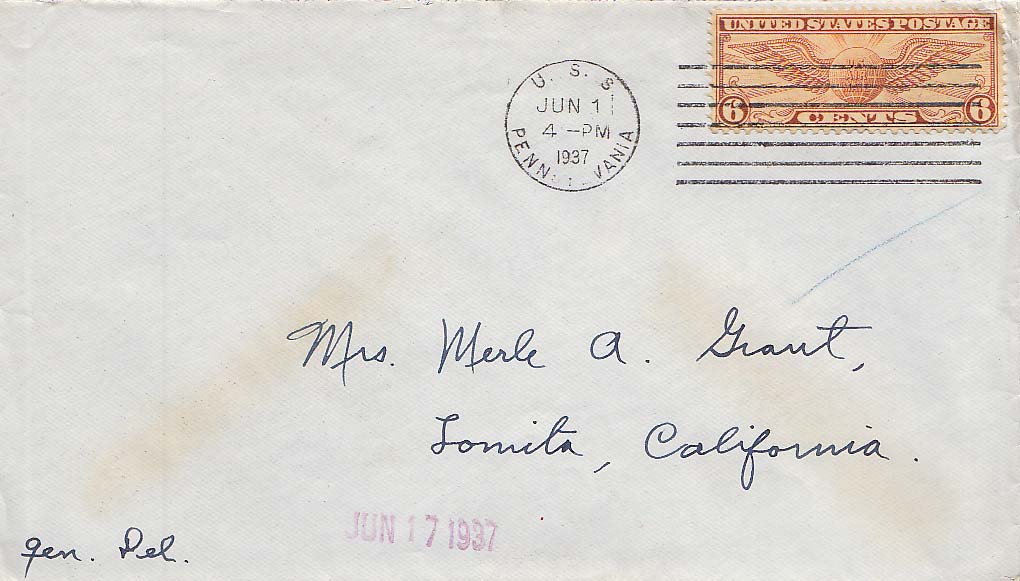 UNITED STATES POSTAGE
U.S.
AIR
MAIL
6 CENTS 6
U. S. S
JUN 11
4 -PM
1937
PENN VANIA
Mrs. Merle A. Grant,
Lomita, California.
JUN 17 1937
gen. Del.